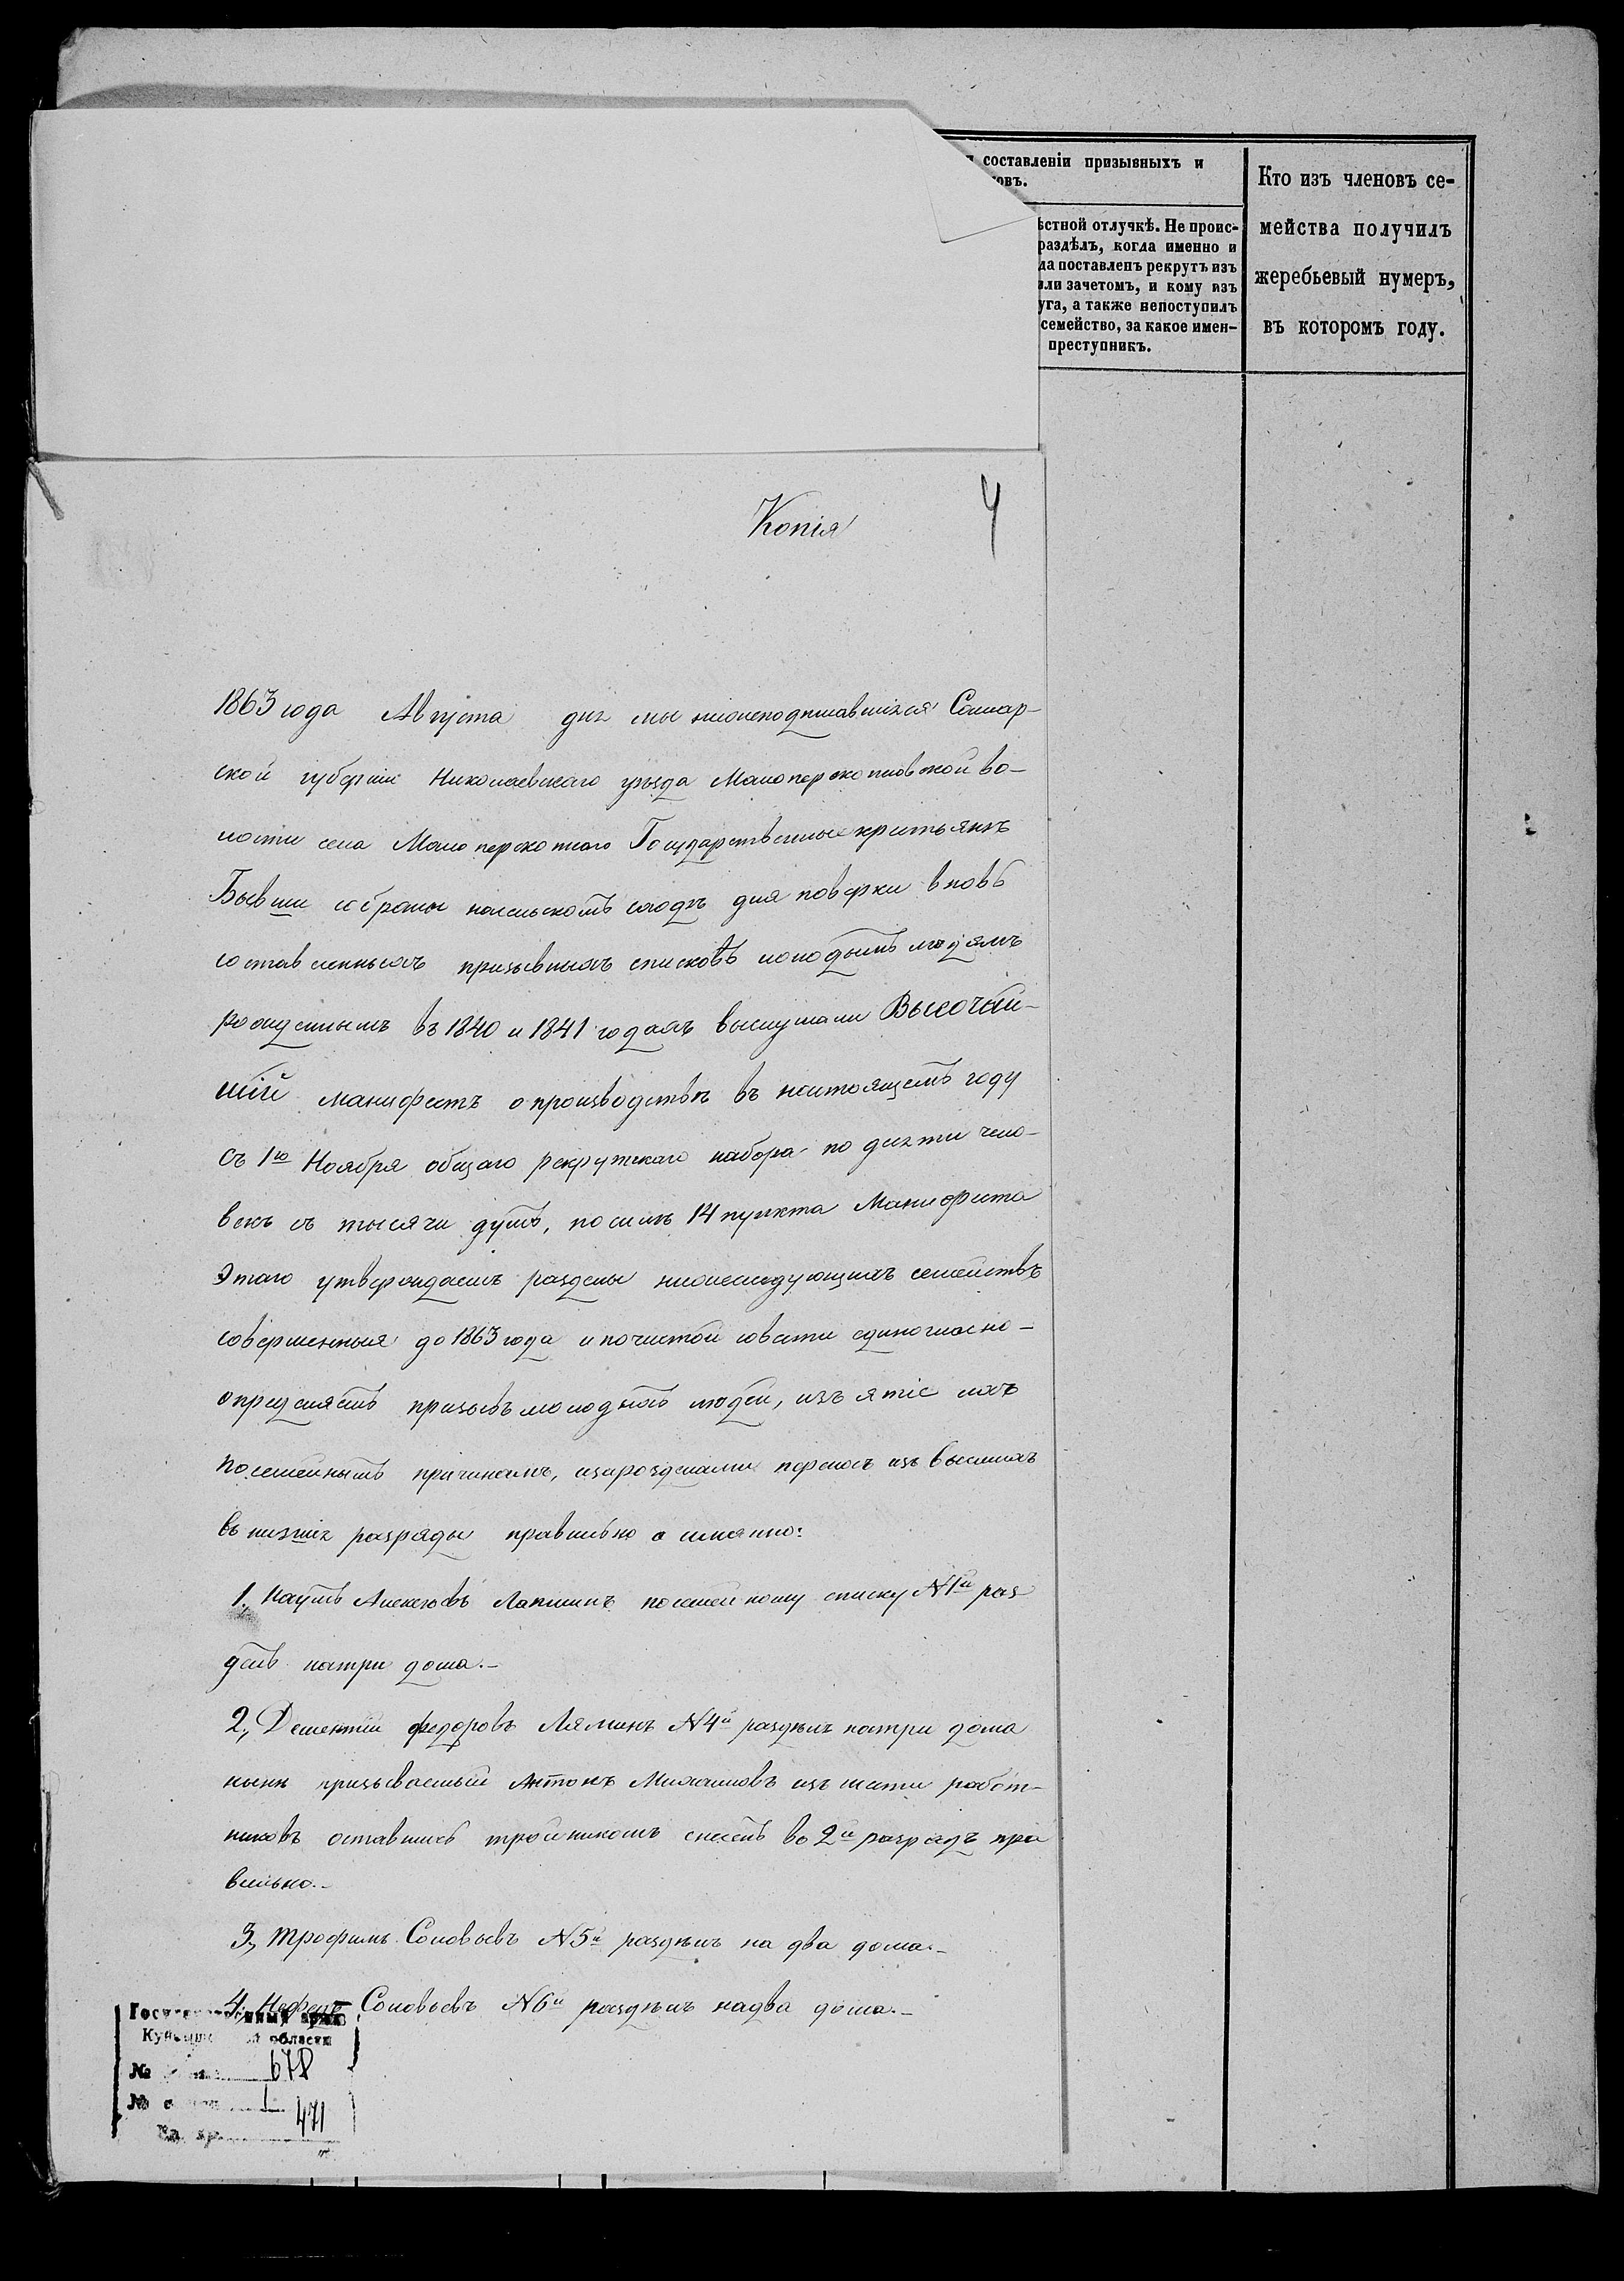 составленіи призывныхъ и
ковъ.
ѣстной отлучкѣ. Не проис-
раздѣлъ, когда именно и
да поставленъ рекрутъ изъ
или зачетомъ, и кому изъ
уга, а также непоступилъ
семейство, за какое имен-
преступникъ.
Кто изъ членовъ се-
мейства получилъ
жеребьевый нумеръ,
въ которомъ году.
Копія
4
1863 года Августа дня мы нижеподписавшіяся Самар-
ской губерніи Николаевскаго уѣзда Малоперекопновской во-
лости села Малоперекопнаго Государственные крестьянъ
Бывши собраны насельскомъ сходѣ для поверки вновь
составленныхъ призывныхъ списковъ молодымъ людямъ
рожденнымъ въ 1840 и 1841 годахъ выслушали Высочай-
шій манифестъ о производствѣ въ настоящемъ году
съ 1го Ноября общаго рекрутскаго набора по десяти чело-
векъ съ тысячи душъ, посилѣ 14 пункта Манифеста
Этаго утверждаемъ разделы нижеследующихъ семействъ
совершенныя до 1863 года и почистой совести единогласно-
определяемъ призывъ молодыхъ людей, изъятіе ихъ
посемейнымъ причинамъ, изаразделами переносъ изъ высшихъ
въ низшія разряды правильно а именно:
1, Наумъ Алексѣевъ Лапшинъ посемейному списку №1й раз
делъ натри дома.-
2, Дементій Федоровъ Ляминъ №4й разделъ натри дома
нынѣ призываемый Антонъ Михаиловъ изъ шести работ-
никовъ оставшись тройникомъ снесенъ во 2й разрядъ пра
вильно.-
3, Трофимъ Соловьевъ №5й разделъ на два дома.-
4, Нефедъ Соловьевъ №6й разделъ надва дома.-
области
№ 678
№ 1
471